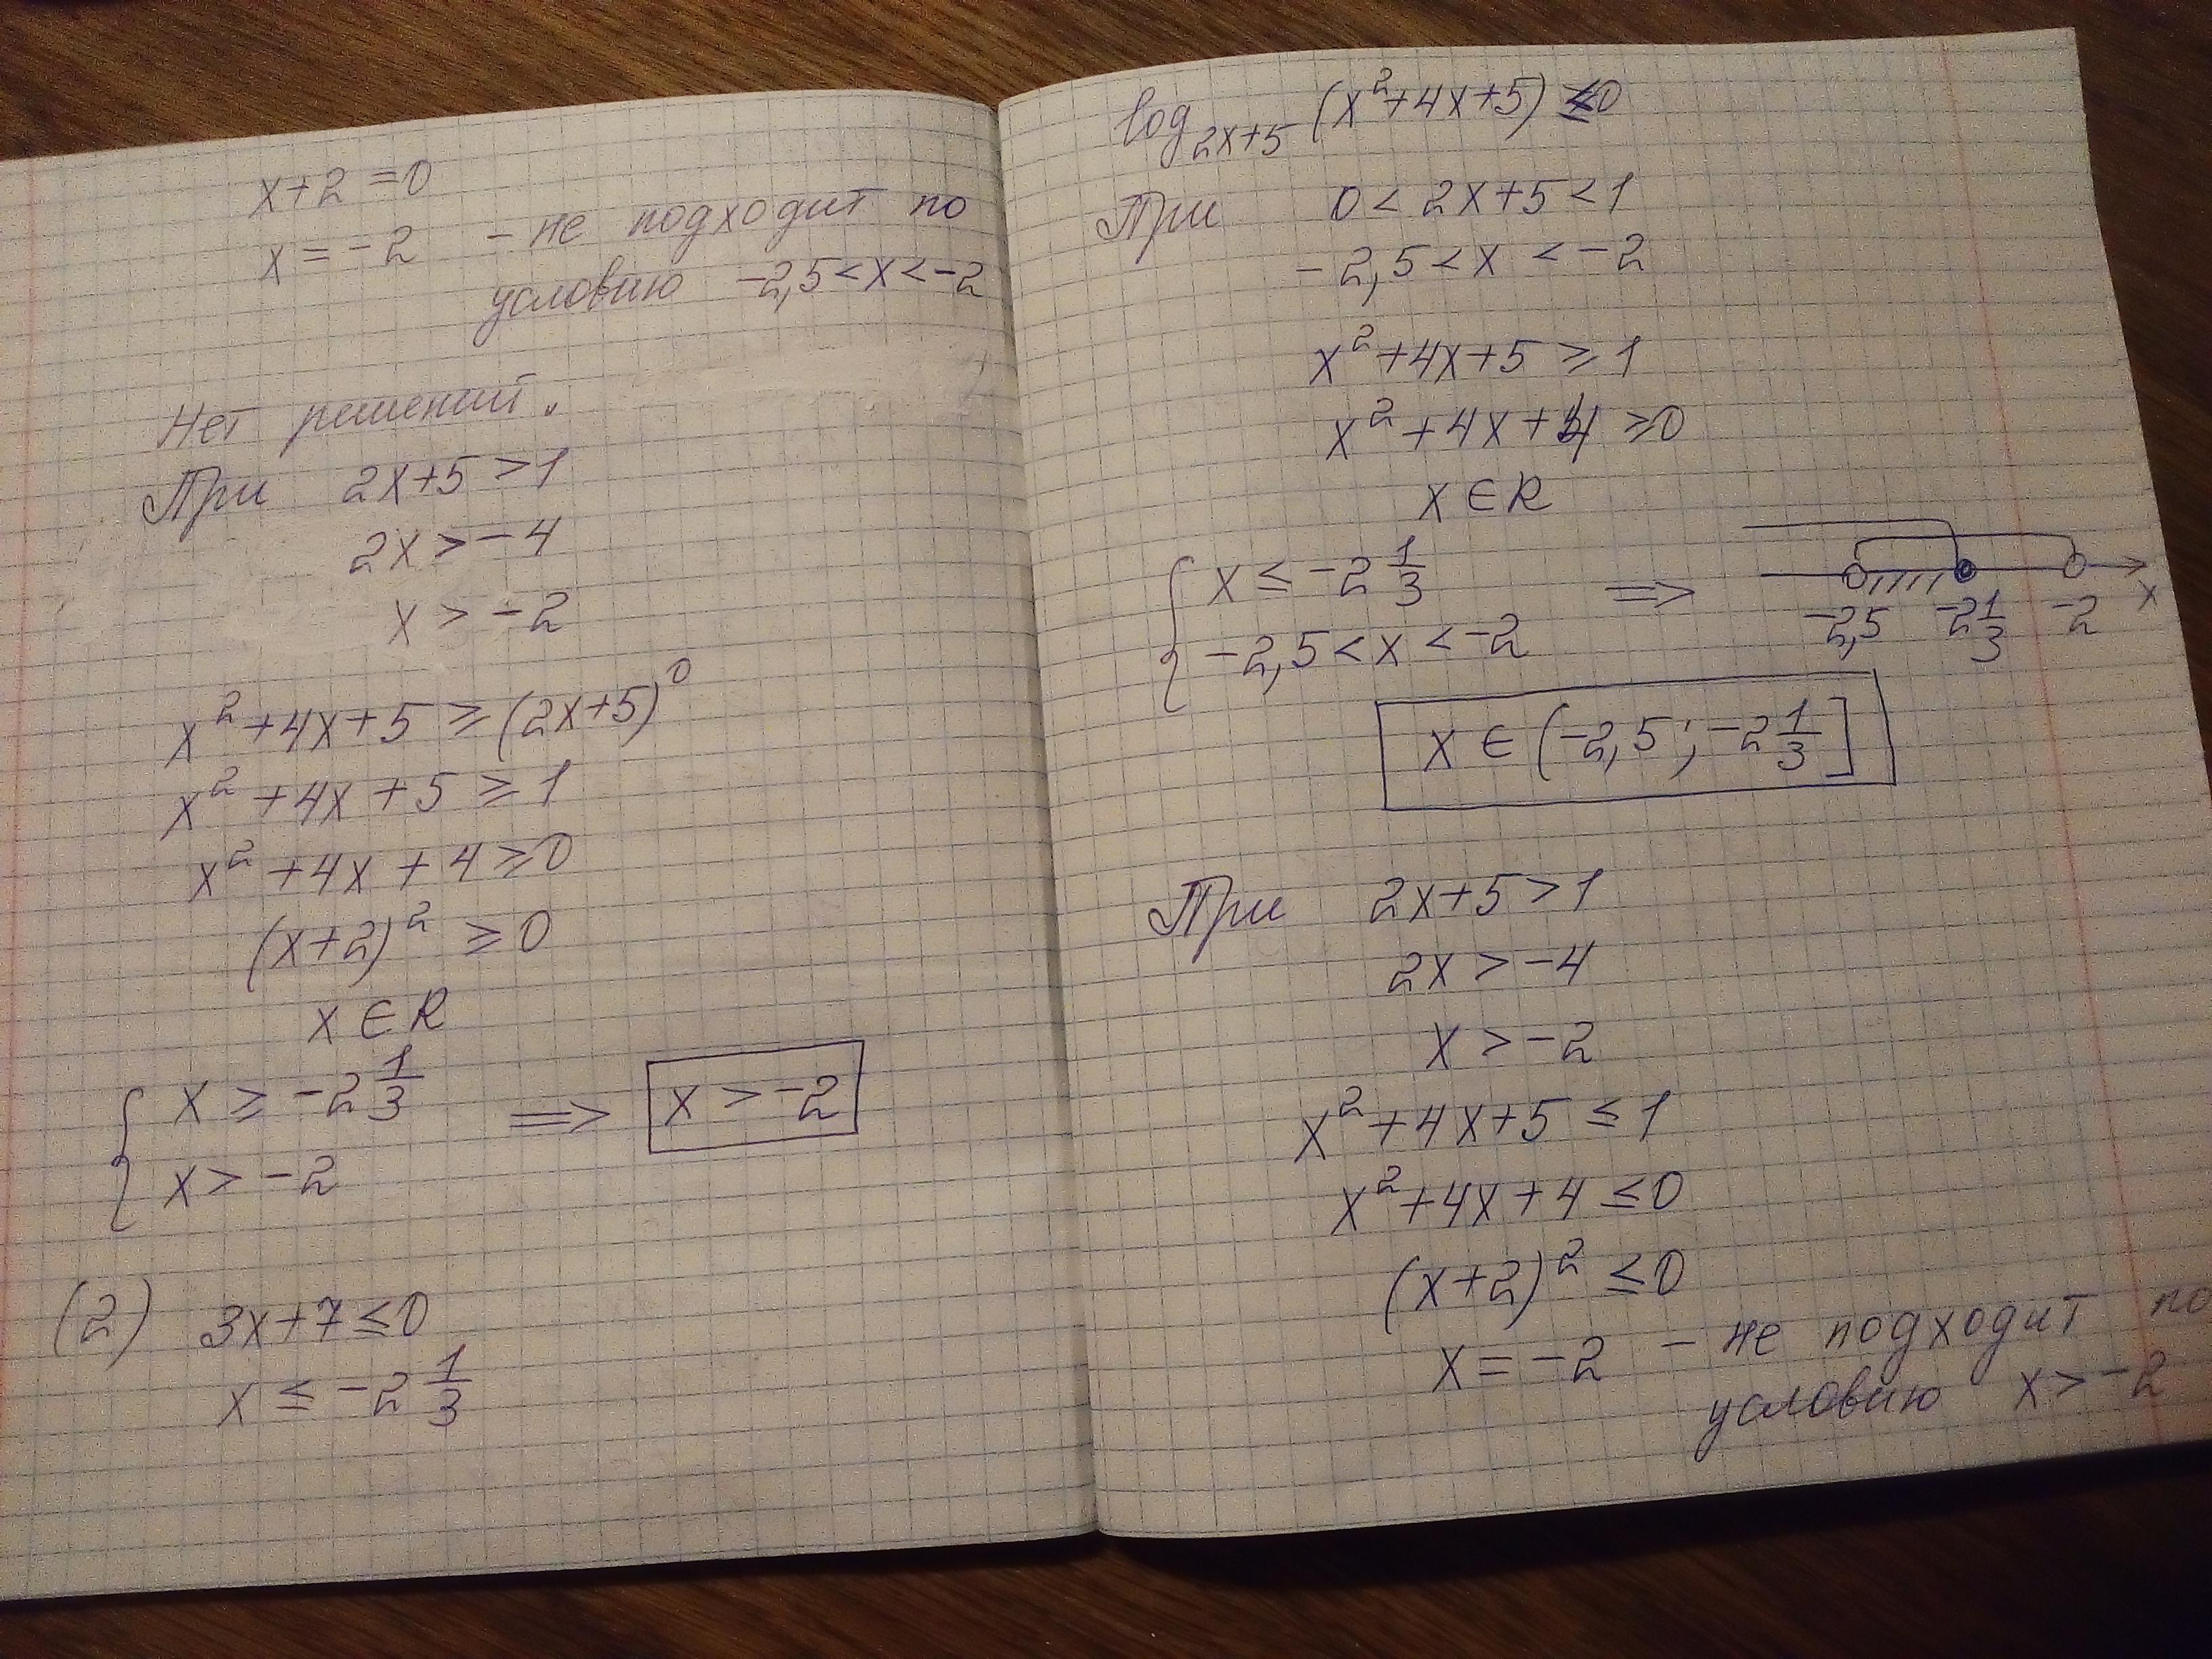 x+2=0
x=-2 - не подходит по
условию -2,5<x<-2
Нет решений.
При 2x+5>1
2x>-4
x>-2
x²+4x+5≥(2x+5)⁰
x²+4x+5≥1
x²+4x+4≥0
(x+2)²≥0
x∈R
{ x≥-2 1/3
x>-2 ⟹ x>-2
(2) 3x+7≤0
x≤-2 1/3
log₂ₓ₊₅(x²+4x+5)≤0
При 0<2x+5<1
-2,5<x<-2
x²+4x+5≥1
x²+4x+4≥0
x∈R
{ x≤-2 1/3
-2,5<x<-2 ⟹
-2,5 -2 1/3 -2 x
x∈(-2,5;-2 1/3]
При 2x+5>1
2x>-4
x>-2
x²+4x+5≤1
x²+4x+4≤0
(x+2)²≤0
x=-2 - не подходит по
условию x>-2